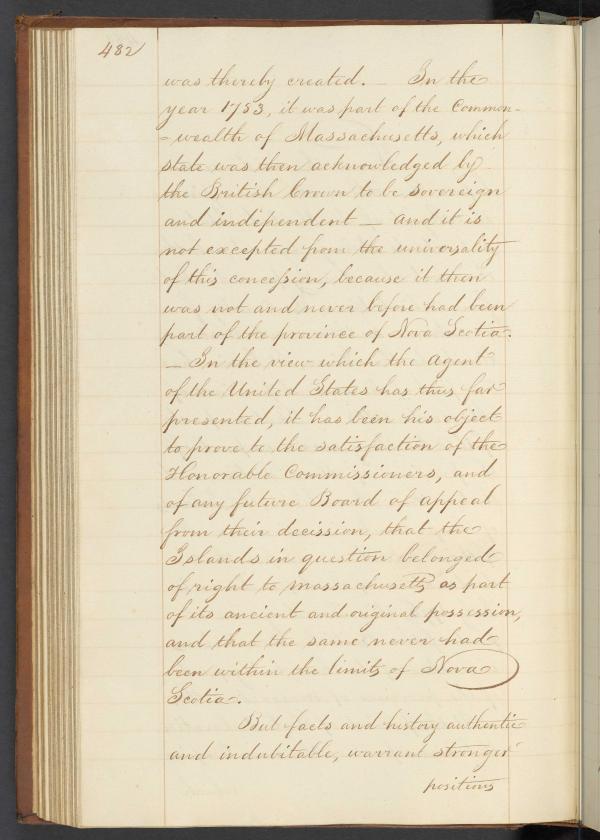 482
was thereby created. — In the
year 1783, it was part of the Common-
=wealth of Massachusetts, which
state was then acknowledged by
the British Crown to be sovereign
and independent — and it is
not excepted from the universality
of this concession, because it then
was not and never before had been
part of the province of Nova Scotia.
— In the view which the agent
of the United States has thus far
presented, it has been his object
to prove to the satisfaction of the
Honorable Commissioners, and
of any future Board of appeal
from their decission, that the
Islands in question belonged
of right to Massachusetts as part
of its ancient and original possession,
and that the same never had
been within the limits of Nova
Scotia.
But facts and history authentic
and indubitable, warrant stronger
positions